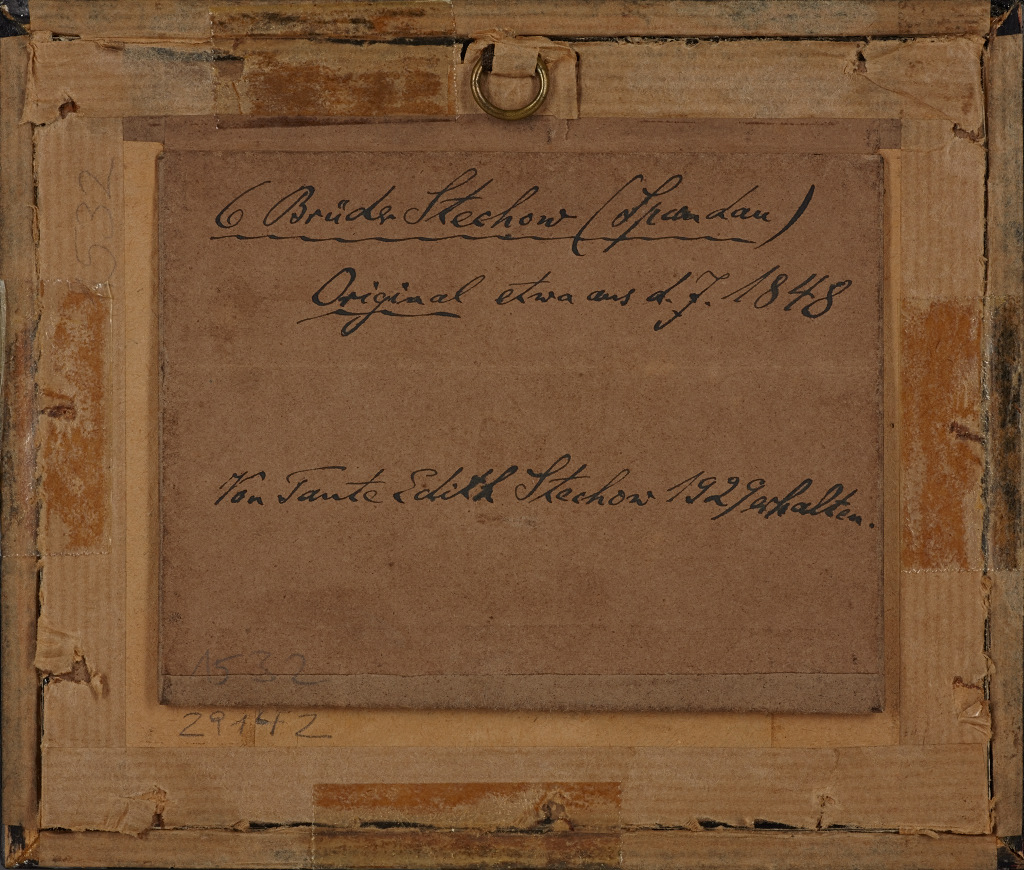 6 Brüder Stechow (Spandau)
Original etwa aus d. J. 1848
Von Tante Edith Stechow 1929 erhalten.
1532
29142
532